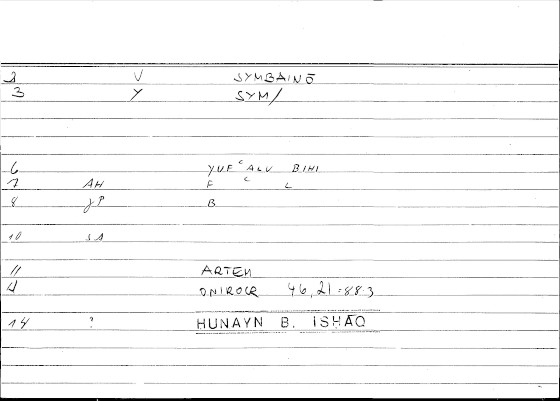 2 V SYMBAINŌ
3 Y SYM/
6 YUFʿALU BIHI
7 AH F ʿ L
8 JP B
10 SA
11 ARTEM
ONIROCR 46,21=88.3
14 ? HUNAYN B. ISHĀQ